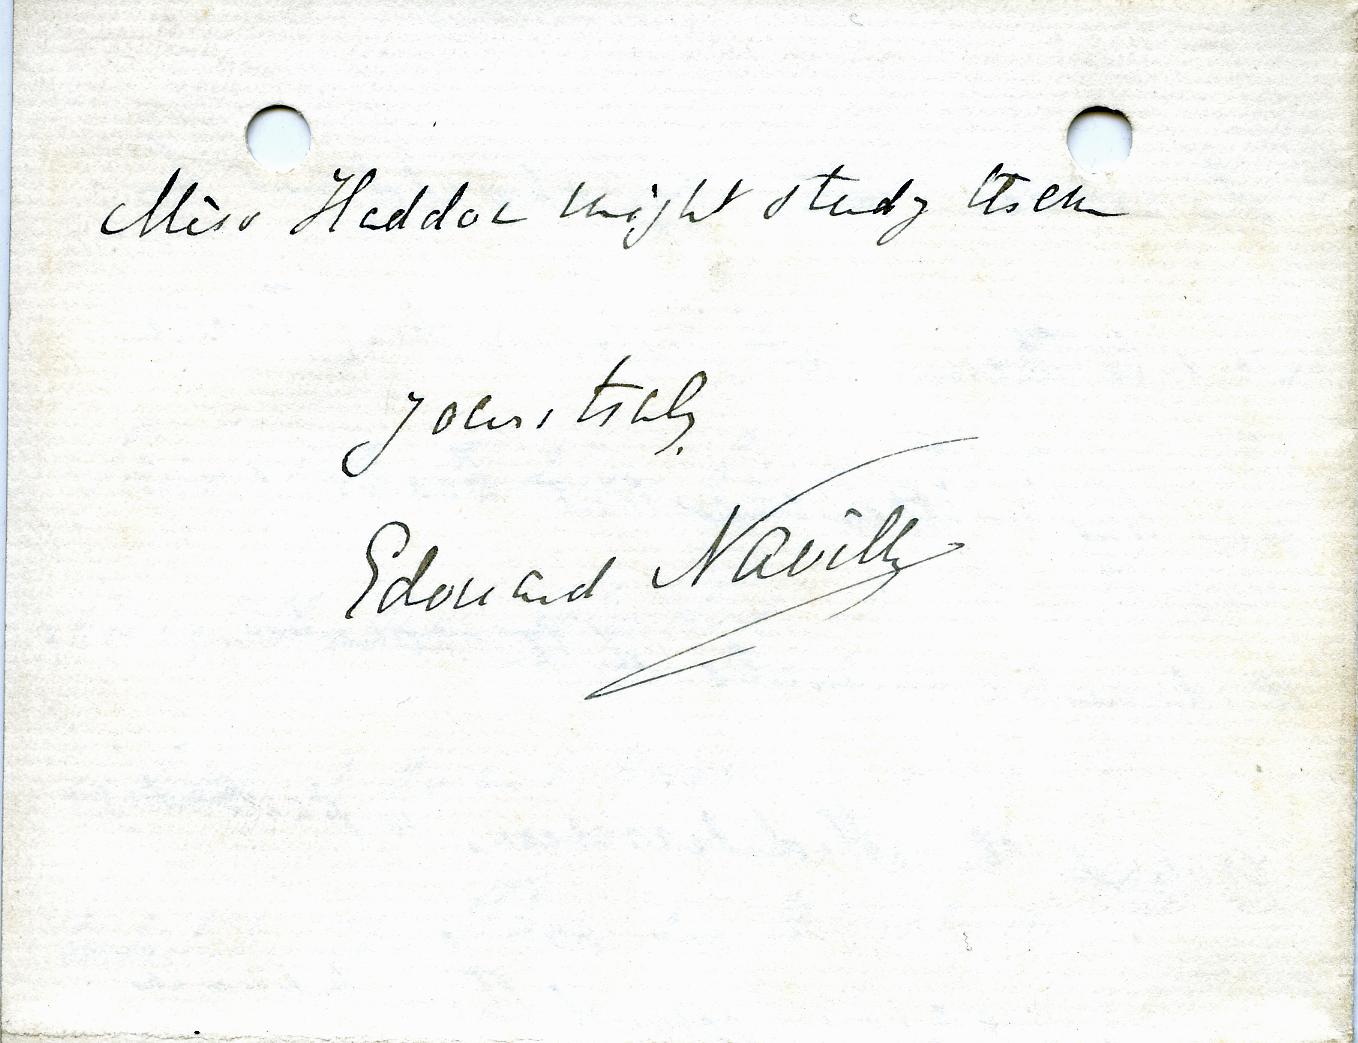 Miss Haddon might study them
yours truly
Edouard Naville